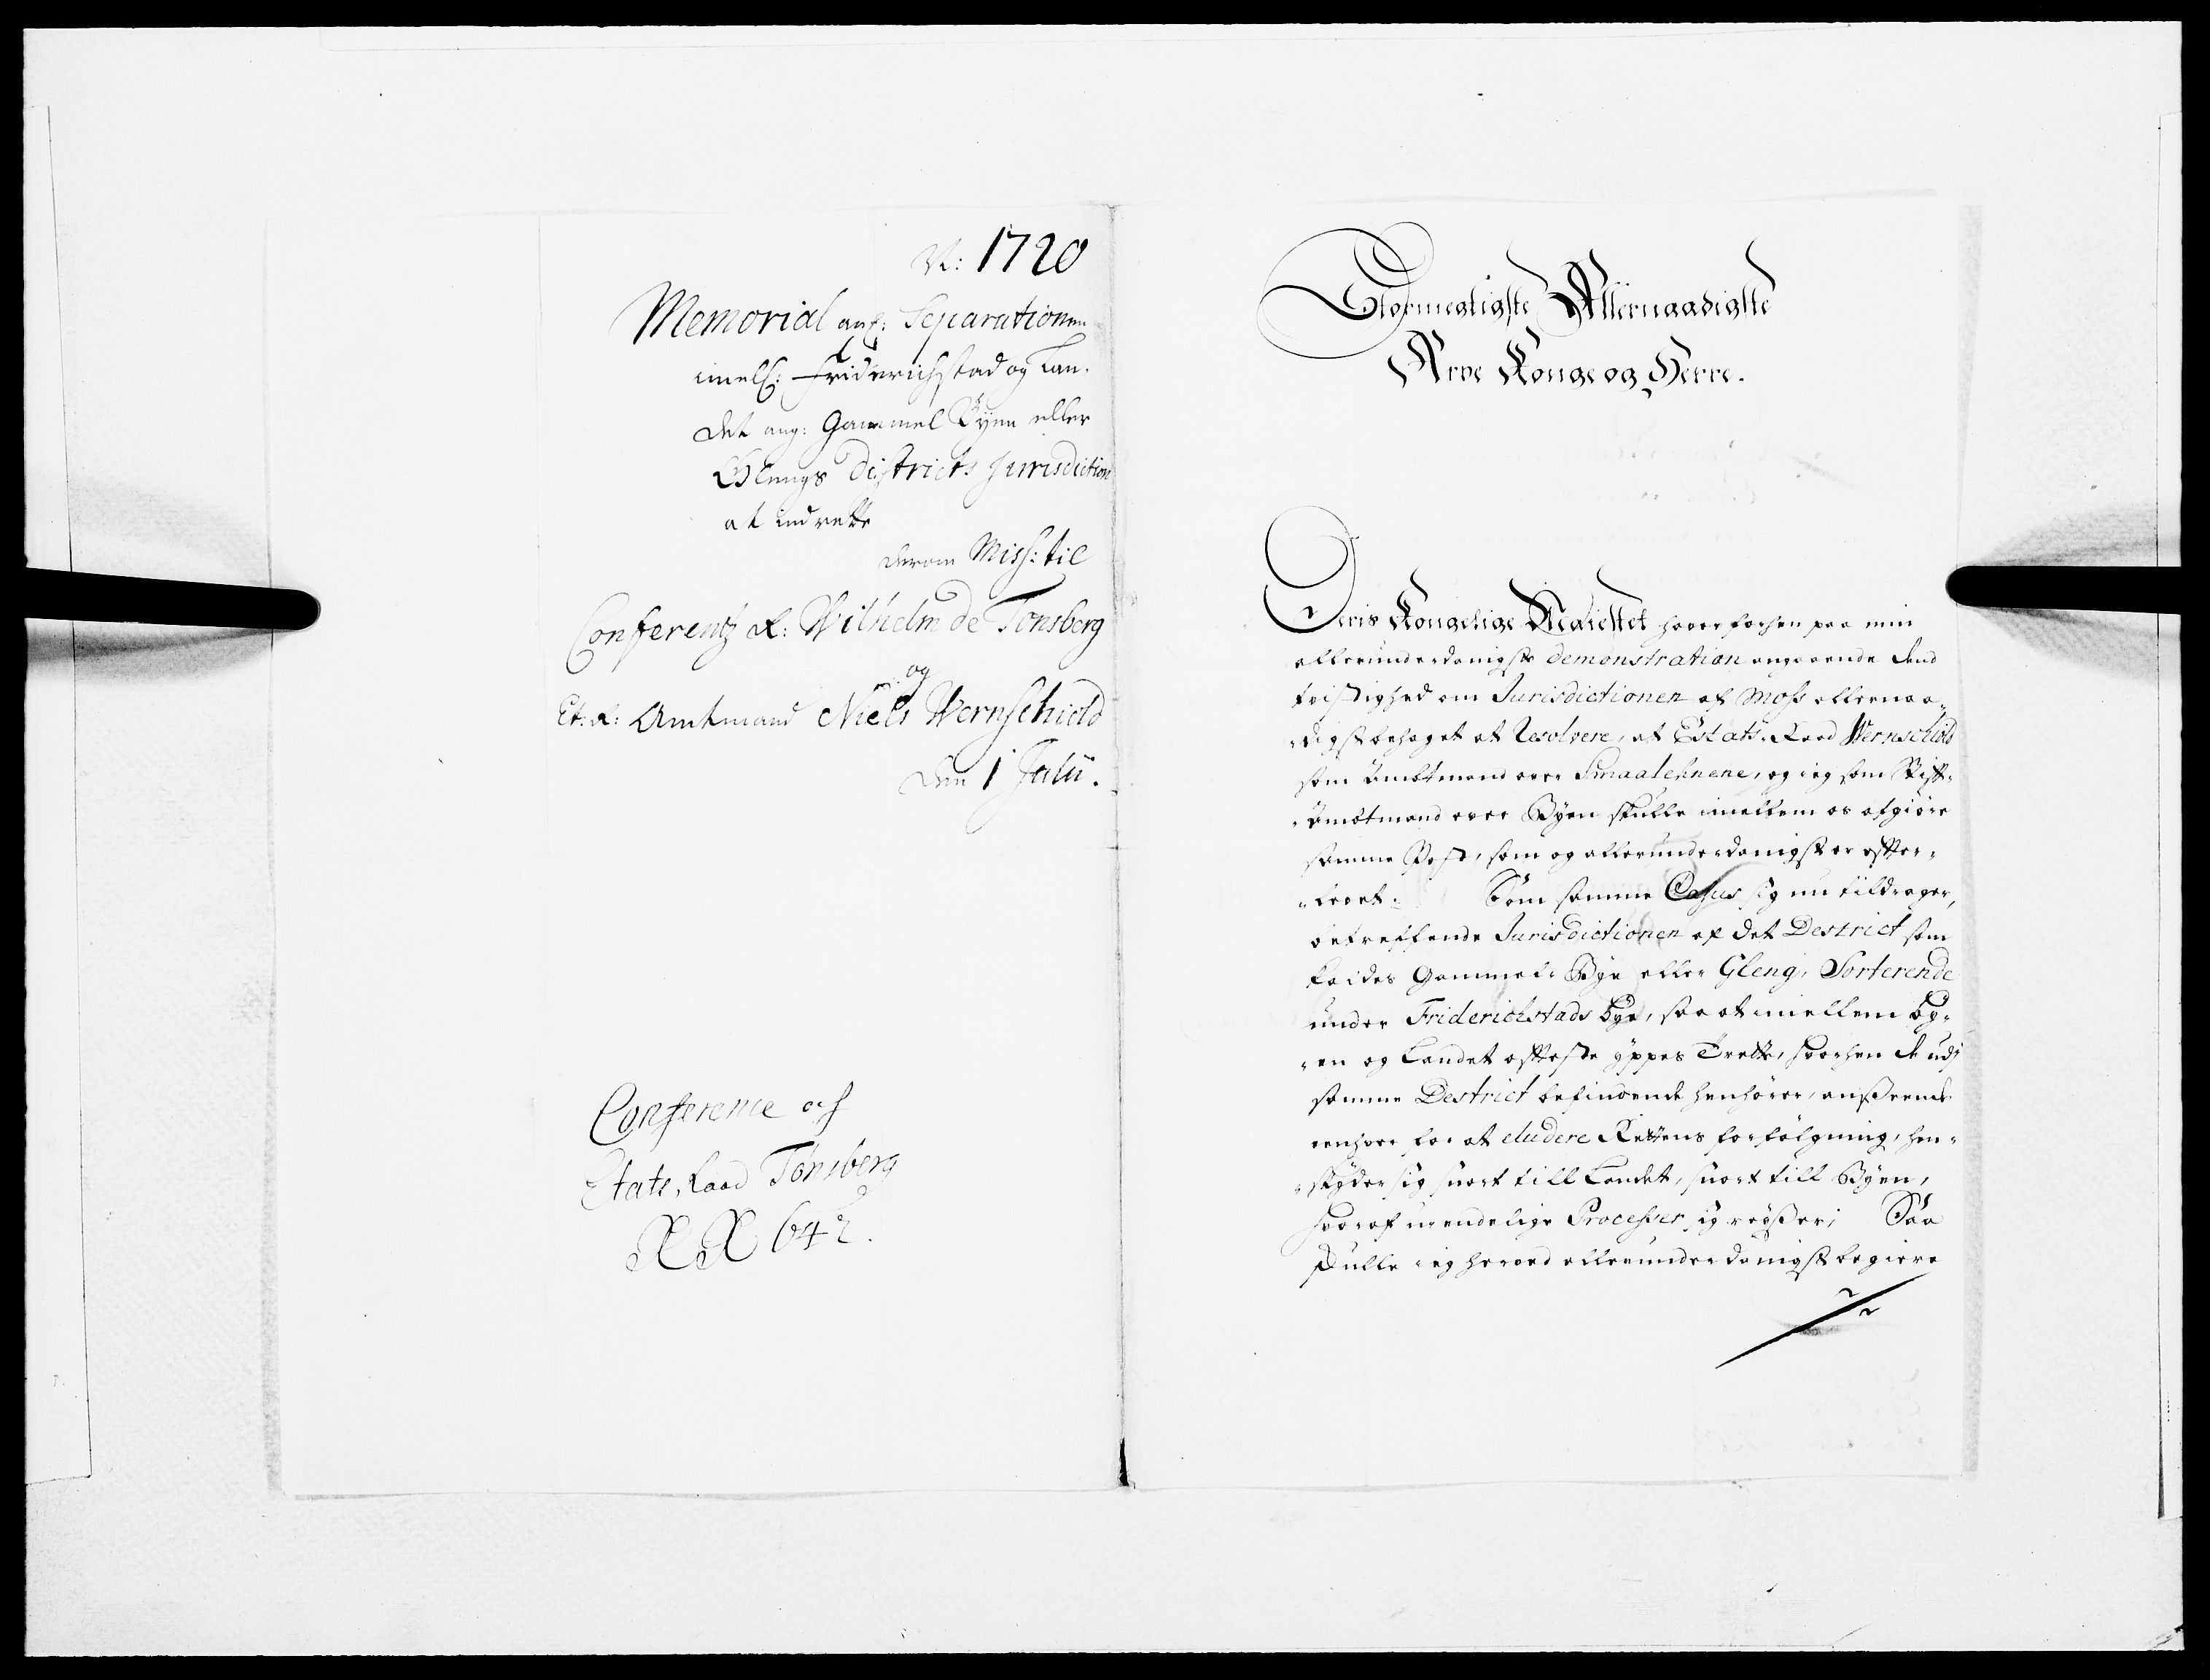 N: 1720
Memorial anl: Separationen
imell: Friderichstad og Lan-
det ang: Gammel Byen eller
Glengs Districts Jurisdiction
at indrette
derom Miss: til
Conferentz R: Wilhelm de Tonsberg
og
Et: R: Amtmand Niels Wernschiold
den 1 Julii.
Conference og
Etats Raad Tonsberg
642.
Stormegtigste Allernaadigste
Arve Konge og Herre.
Deris Kongelige Maiestet haver forhen paa min
allerunderdanigste demonstration angaaende dend
tvistighed om Jurisdictionen af Moss allernaa-
digst behaget at Resolvere, at Estats-Raad Wernschiold
som Ambtmand over Smaalehnene, og ieg som Stift-
Ambtmand over Byen skulle imellem os afgiøre
samme Post, som og allerunderdanigst er efter-
levet. Som samme Casus sig nu tildrager,
betreffende Jurisdictionen af det Destrict som
kaldes Gammel Bye eller Gleng, Sorterende
under Friderichstads Bye, saa at imellem By-
en og Landet ofteste yppes Trette, hvorhen de udj
samme Destrict befindende henhører, anseende
enhver for at eludere Rettens forfølgning, hen-
skyder sig snart till Landet, snart till Byen,
hvoraf uendelige Processer sig reyser; Saa
skulle ieg herved allerunderdanigst begiere